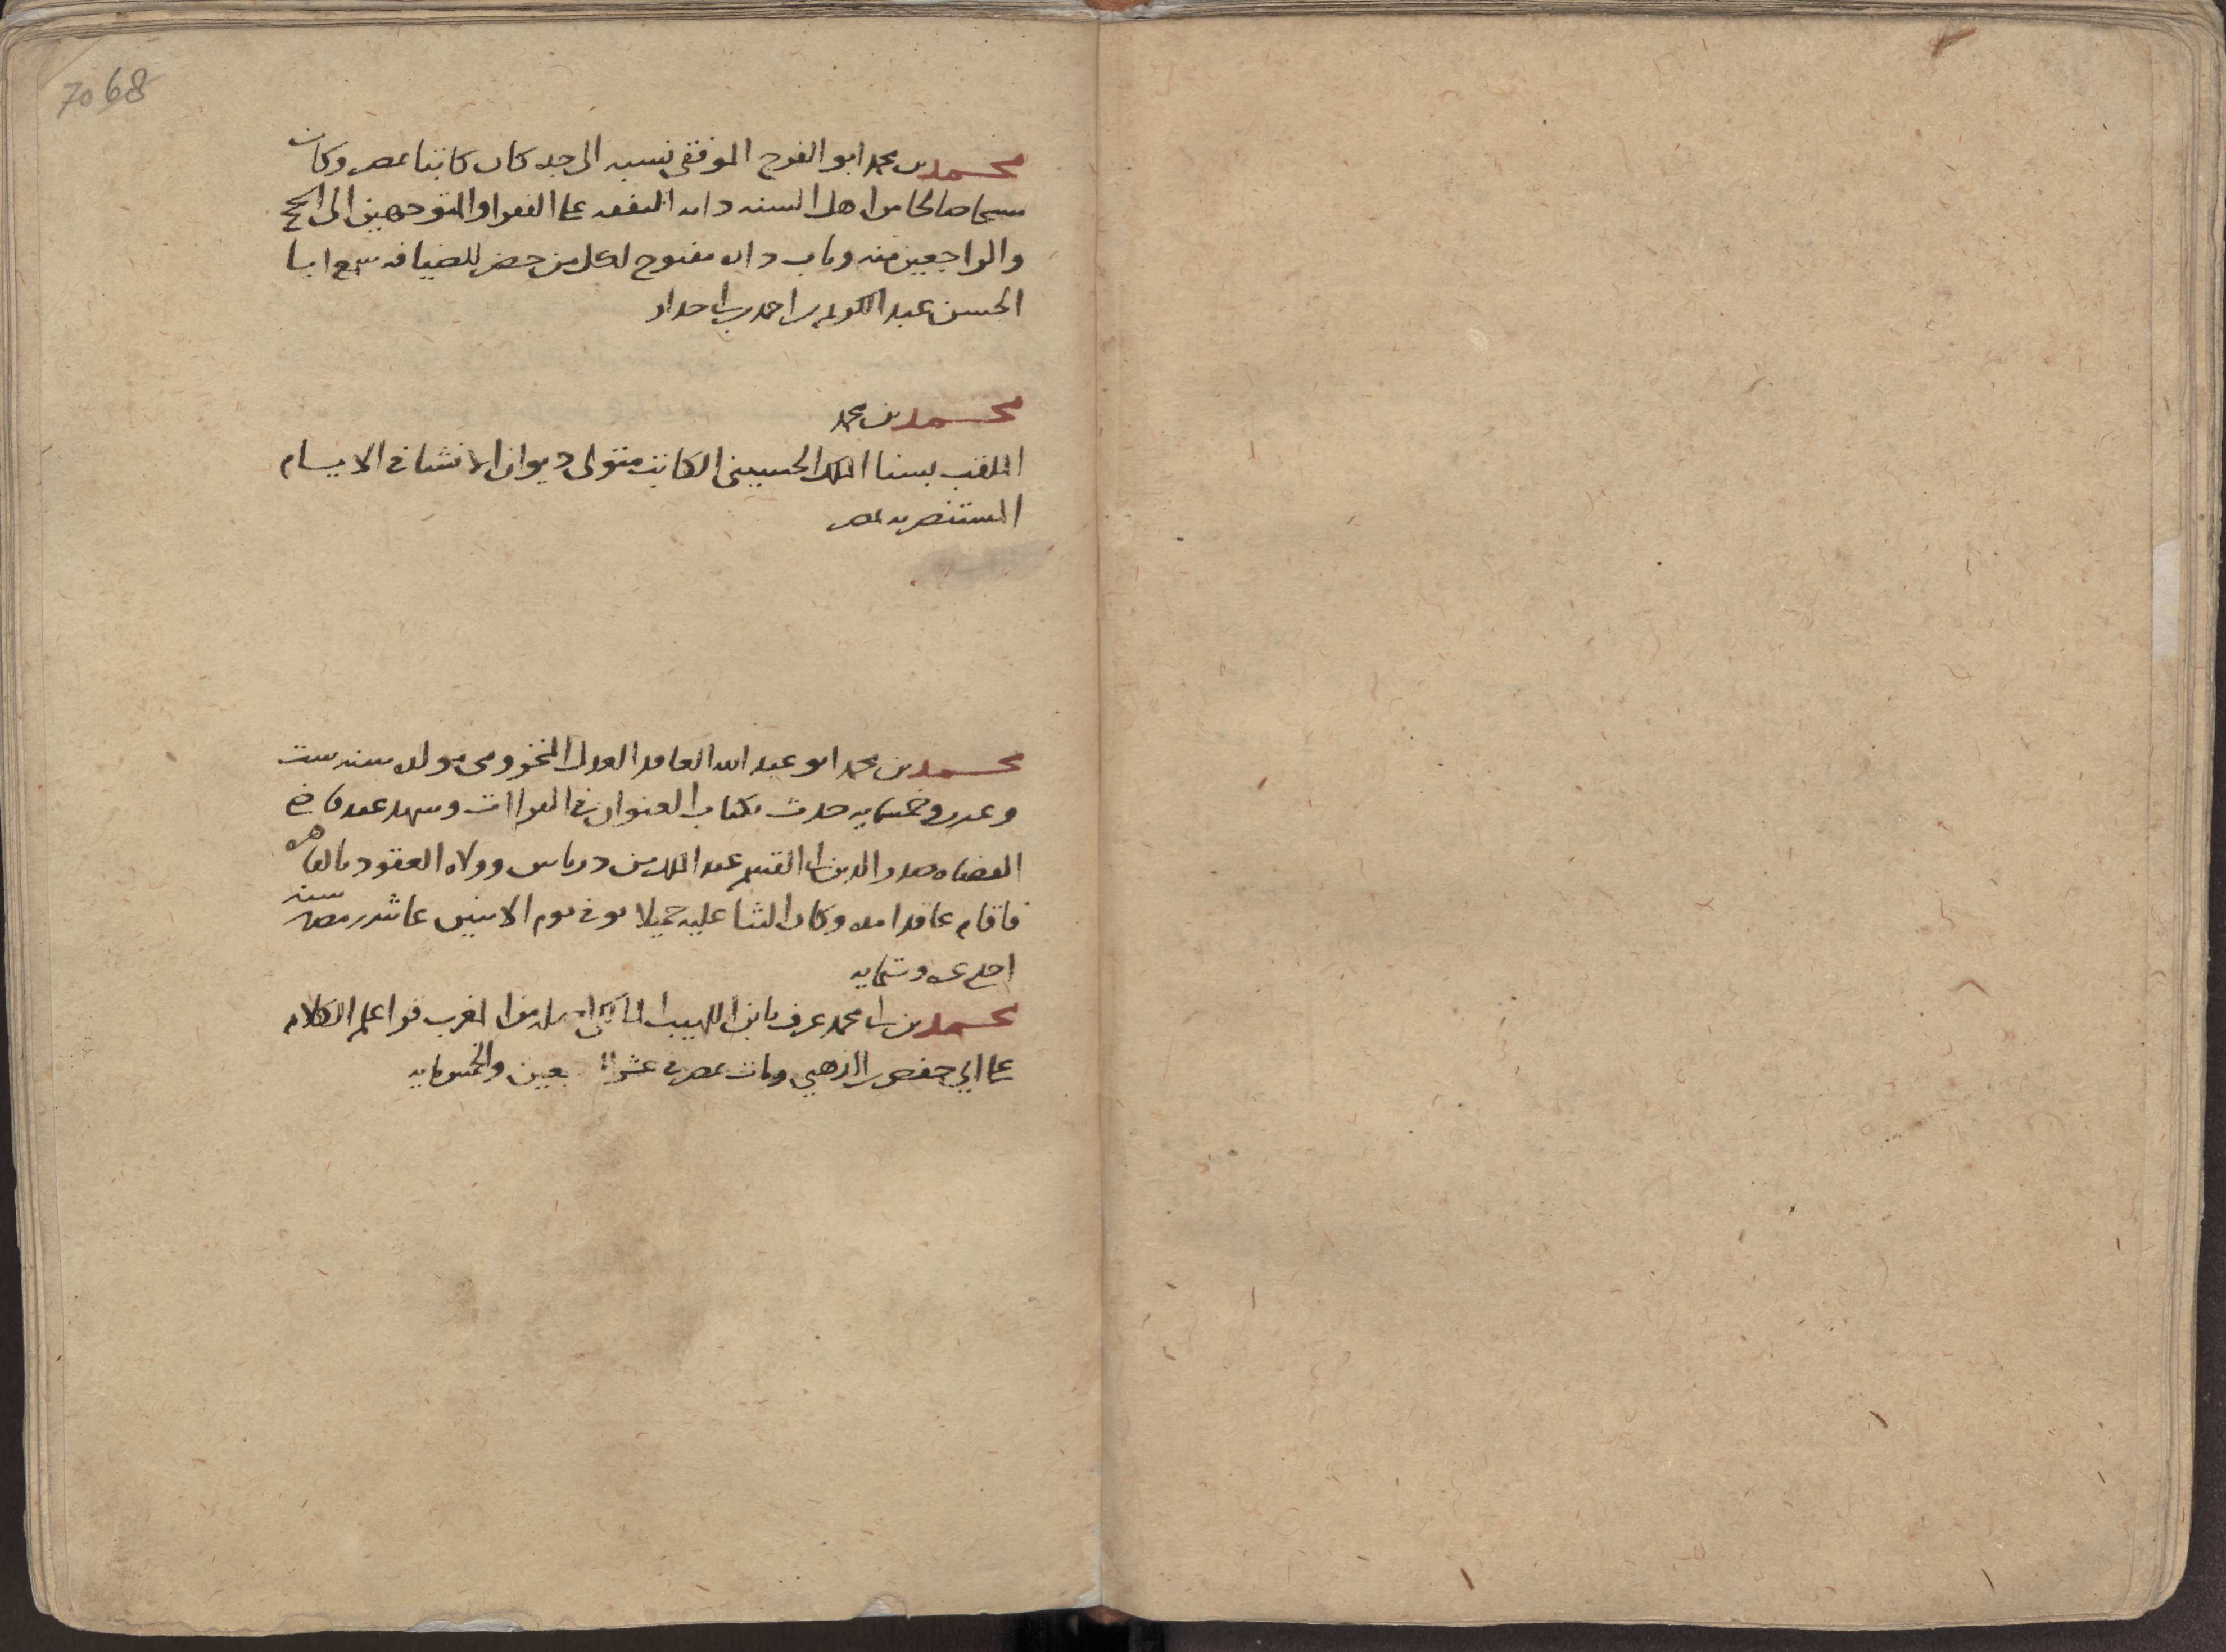 7068
محمد بن محمد ابو الفرج الموفقي نسبه الى جد كان كاتبا بمصر وكان
شيخا صالحا من اهل السنه دايم النفقه على الفقرا والمتوجهين الى الحج
والراجعين منه وباب داره مفتوح لكل من حضر للضيافه سمع ابا
الحسن عبد الكريم بن احمد بن ابي حداد
محمد بن محمد
الملقب بسنا الملك الحسيني الكاتب متولى ديوان الانشا في الايام
المستنصريه بمصر
محمد بن محمد ابو عبد الله العاقد العدل المخزومي مولده سنه ست
وعشرين وخمسمايه حدث بكتاب العنوان في القراات وشهد عند قاضي
القضاه صدر الدين ابي القسم عبد الملك بن درباس وولاه العقود بالقاهره
فاقام عاقدا مده وكان الثنا عليه جميلا توفى يوم الاثنين عاشر رمضان سنه
احدى وستمايه
محمد بن ابي محمد عرف بابن اللهيب المالكي اصله من المغرب قرا علم الكلام
على ابي حفص الذهبي ومات بمصر في عشر والخمسمايه